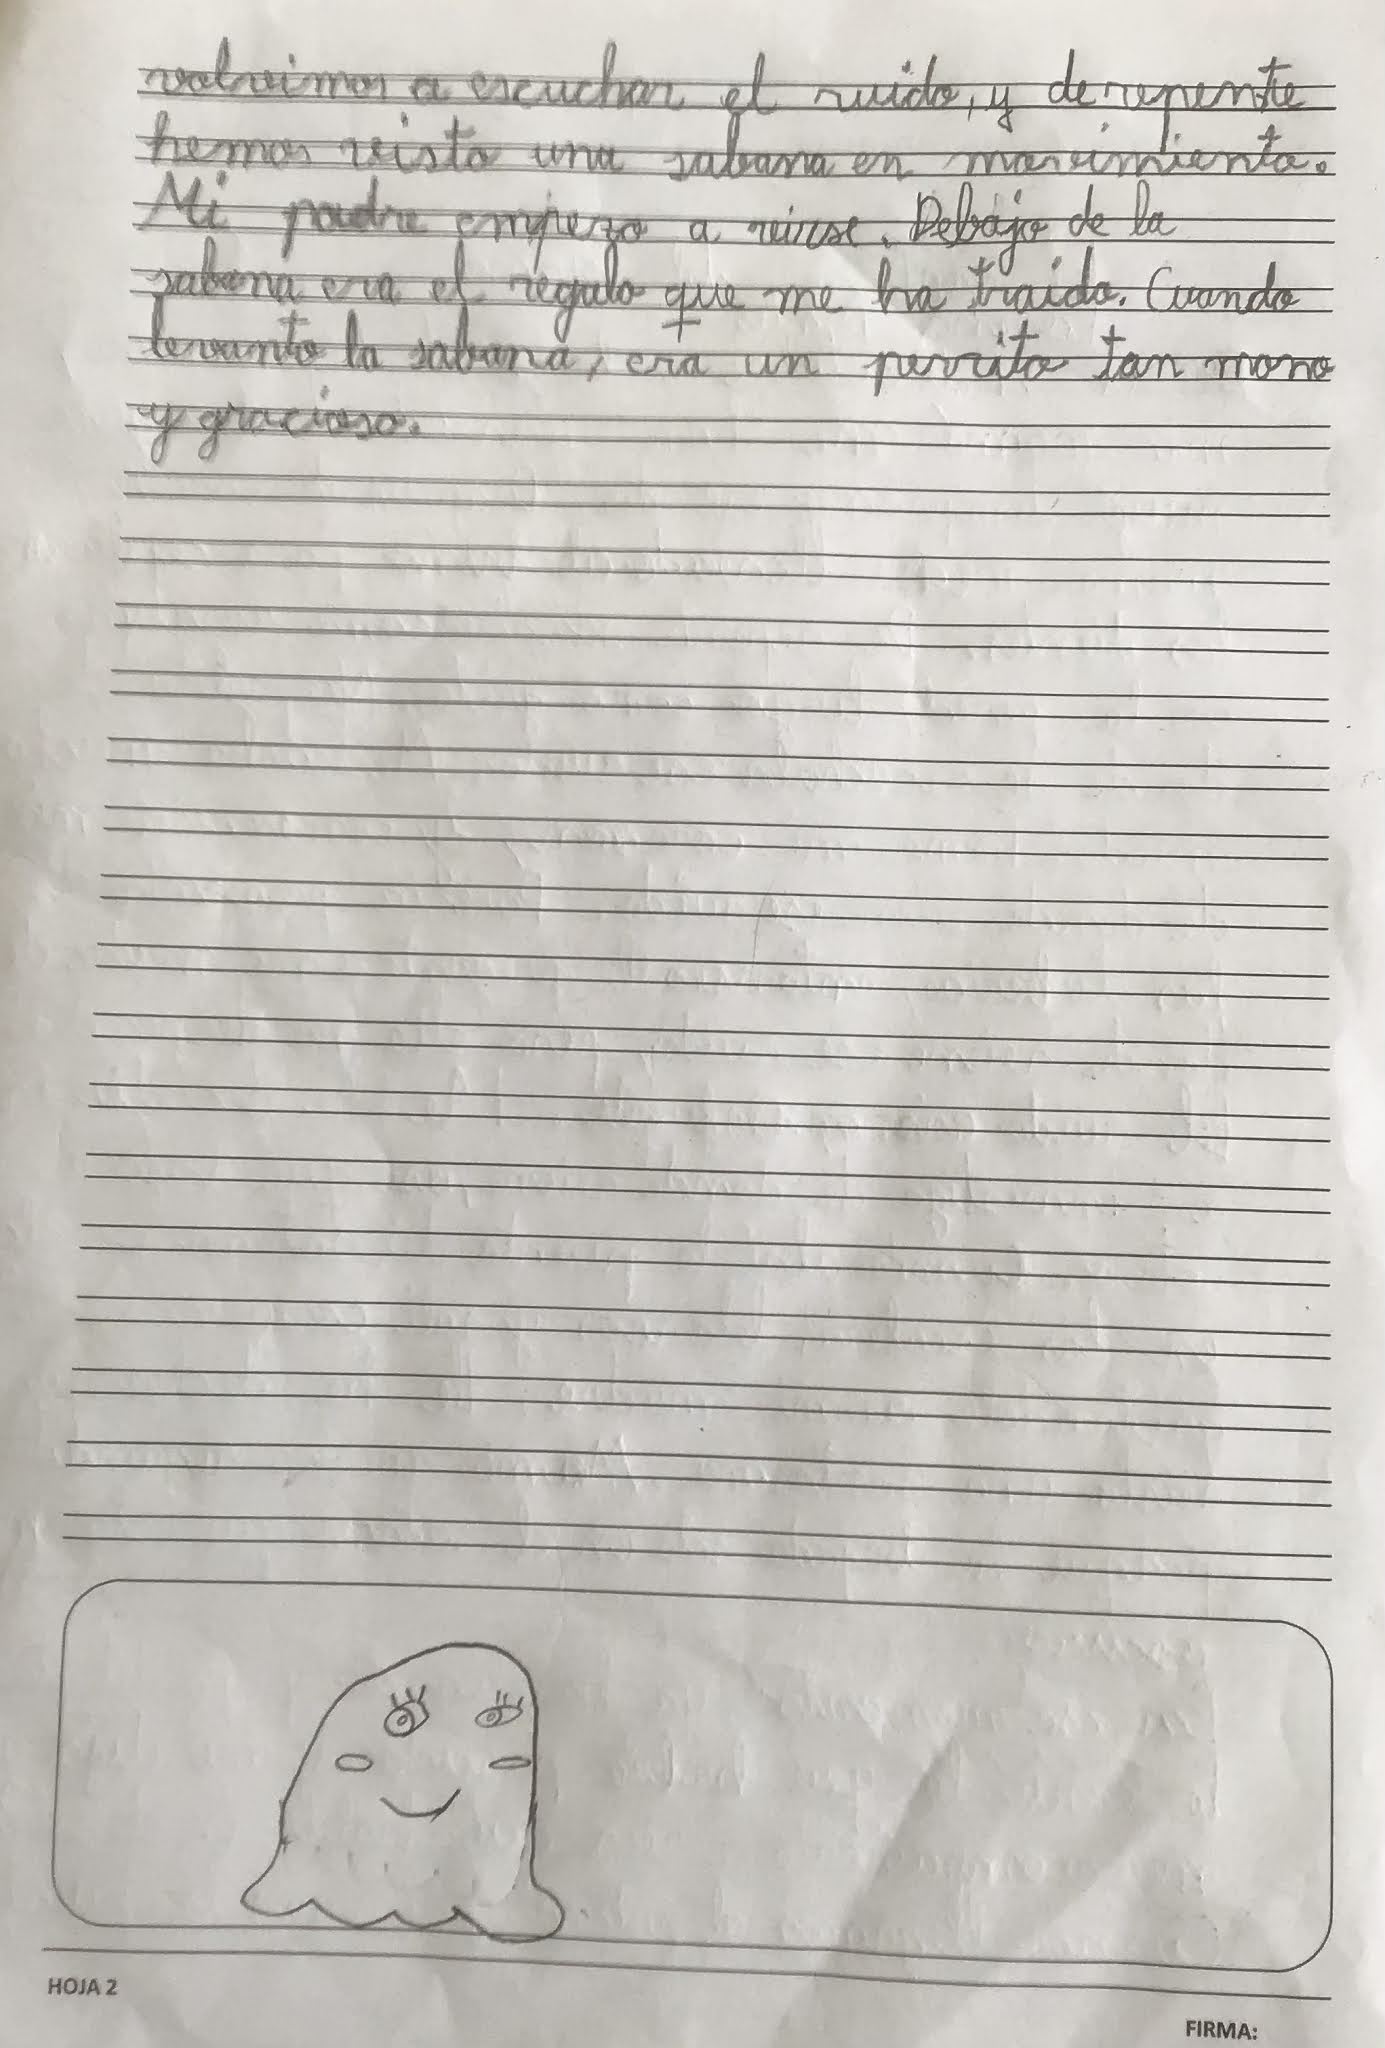 volvimos a escuchar el ruido, y de repente
hemos visto una sabana en movimiento.
Mi padre empezo a reirse. Debajo de la
sabana era el regalo que me ha traido. Cuando
levanto la sabana, era un perrito tan mono
y gracioso.
HOJA 2
FIRMA: